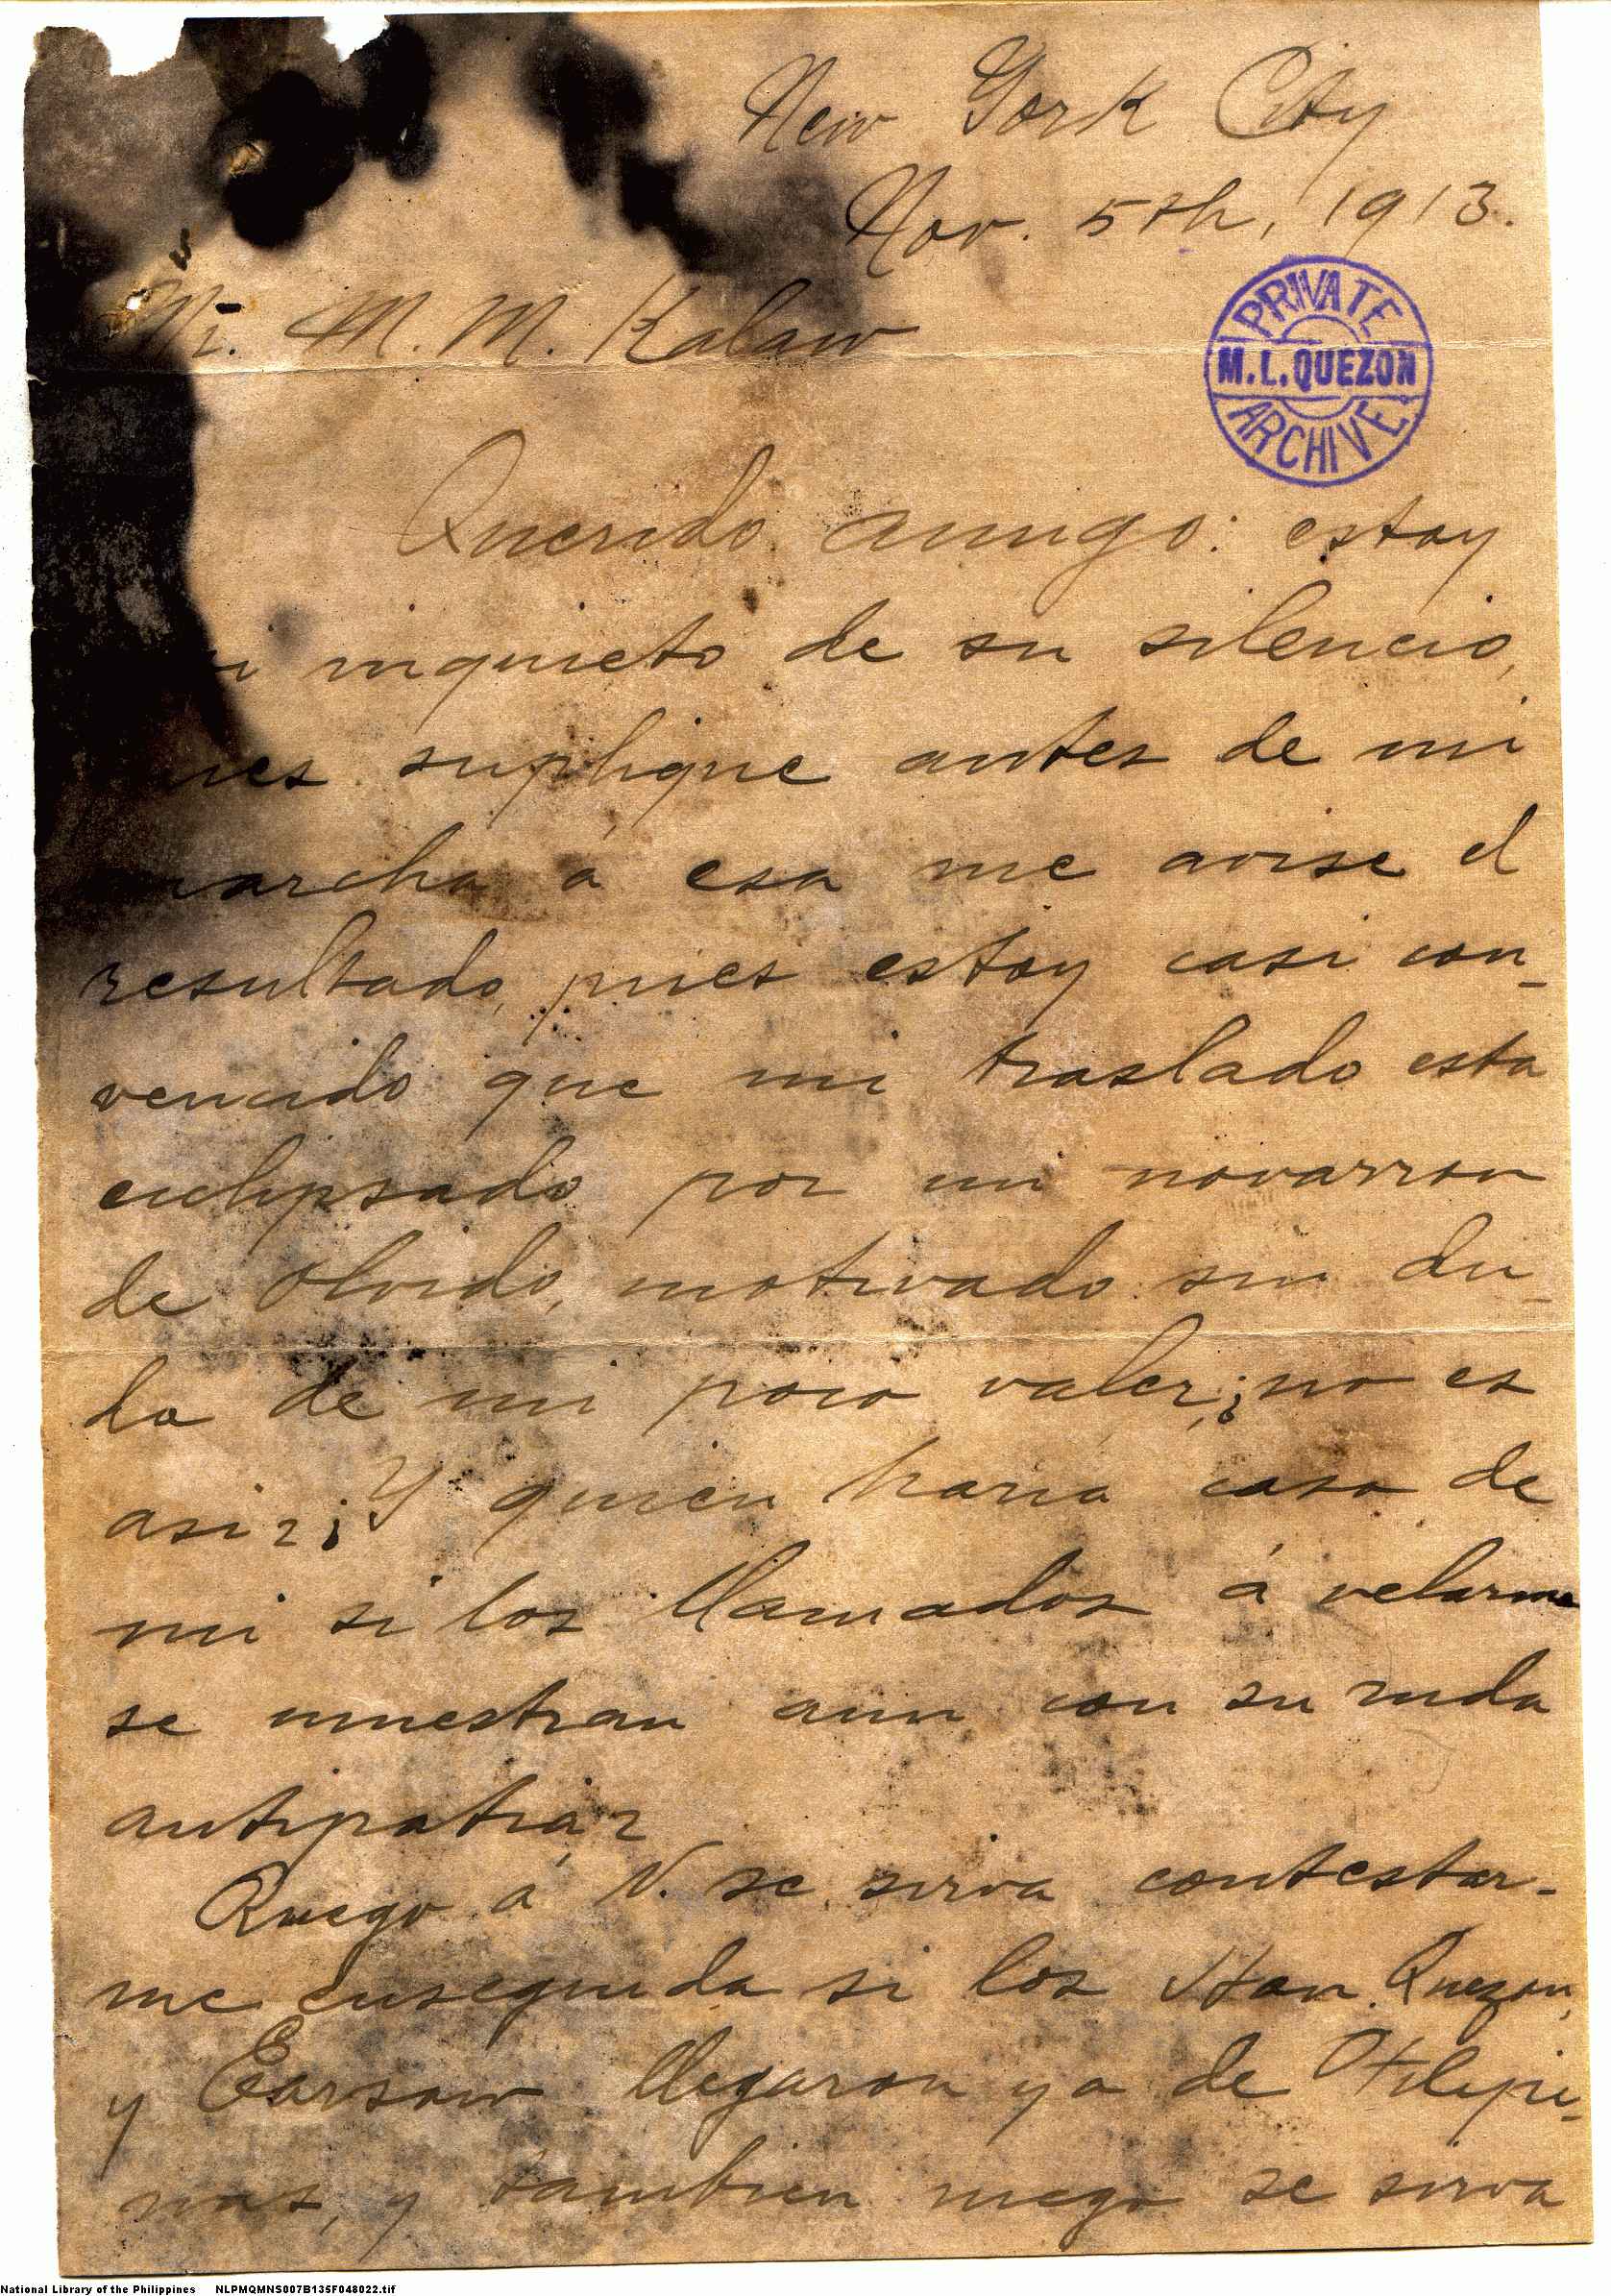 New York City
Nov. 5th, 1913.
Mr. M. M. Kalaw
PRIVATE
M. L. QUEZON
ARCHIVE
Querido amigo: estoy
inquieto de su silencio,
pues suplique antes de mi
marcha á esa me avise el
resultado, pues estoy casi con-
vencido que mi traslado esta
eclipsado por un novarron
de olvido, motivado sin du-
da de mi poco valer, ¿no es
asi? ¿Y quien haria caso de
mi si los llamados á velarme
se muestran aun con su ruda
antipatia?
Ruego á V. se sirva contestar-
me enseguida si los Hon. Quezon,
y Earsaw llegaron ya de Filipi-
nas, y tambien ruego se sirva
National Library of the Philippines NLPMQMNS007B135F048022.tif